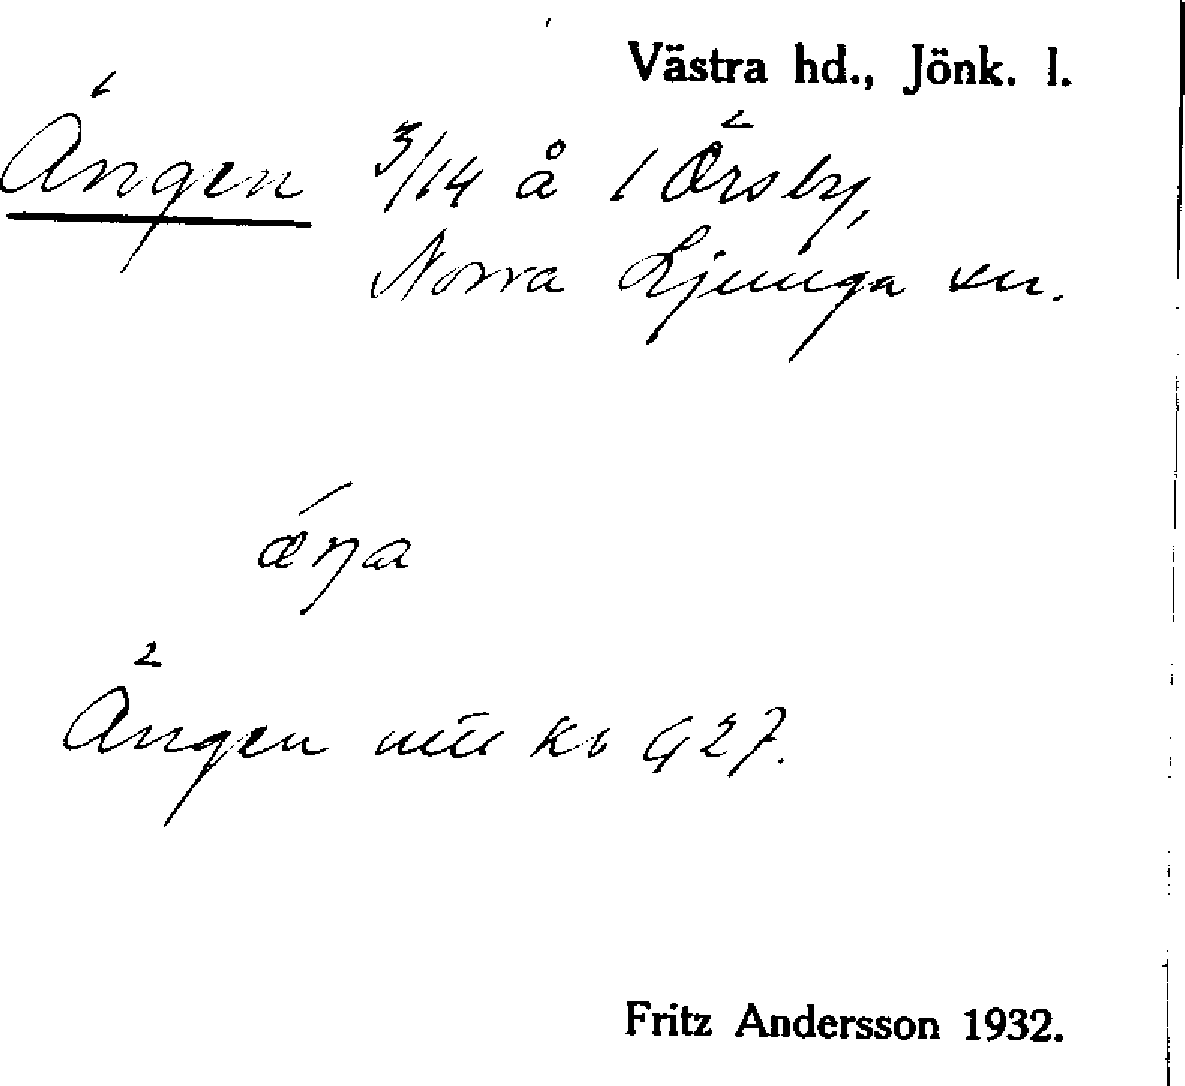 Västra hd., Jönk. l.
Ängen 3/14 å 1 Örsby,
Norra Ljunga sn.
ǽŋa
Ängen kb G 27.
Fritz Andersson 1932.